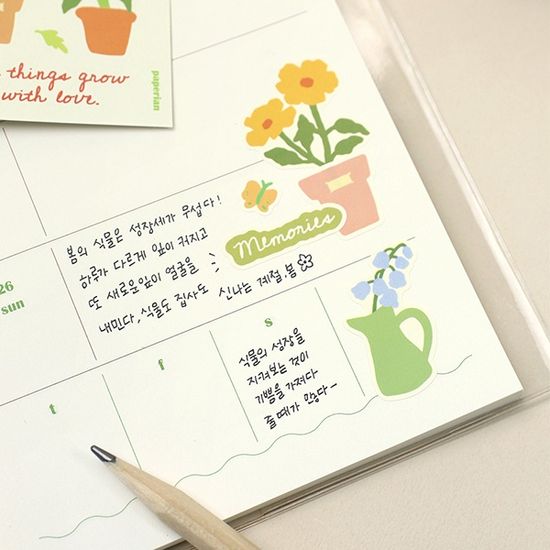 things grow
with love.
paperian
봄의 식물은 성장세가 무섭다!
하루가 다르게 잎이 커지고
또 새로운잎이 얼굴을
내민다, 식물도 집사도 신나는 계절.봄
Memories
26
sun
t
f
s
식물의 성장을
지켜보는 것이
기쁨을 가져다
줄때가 많다~